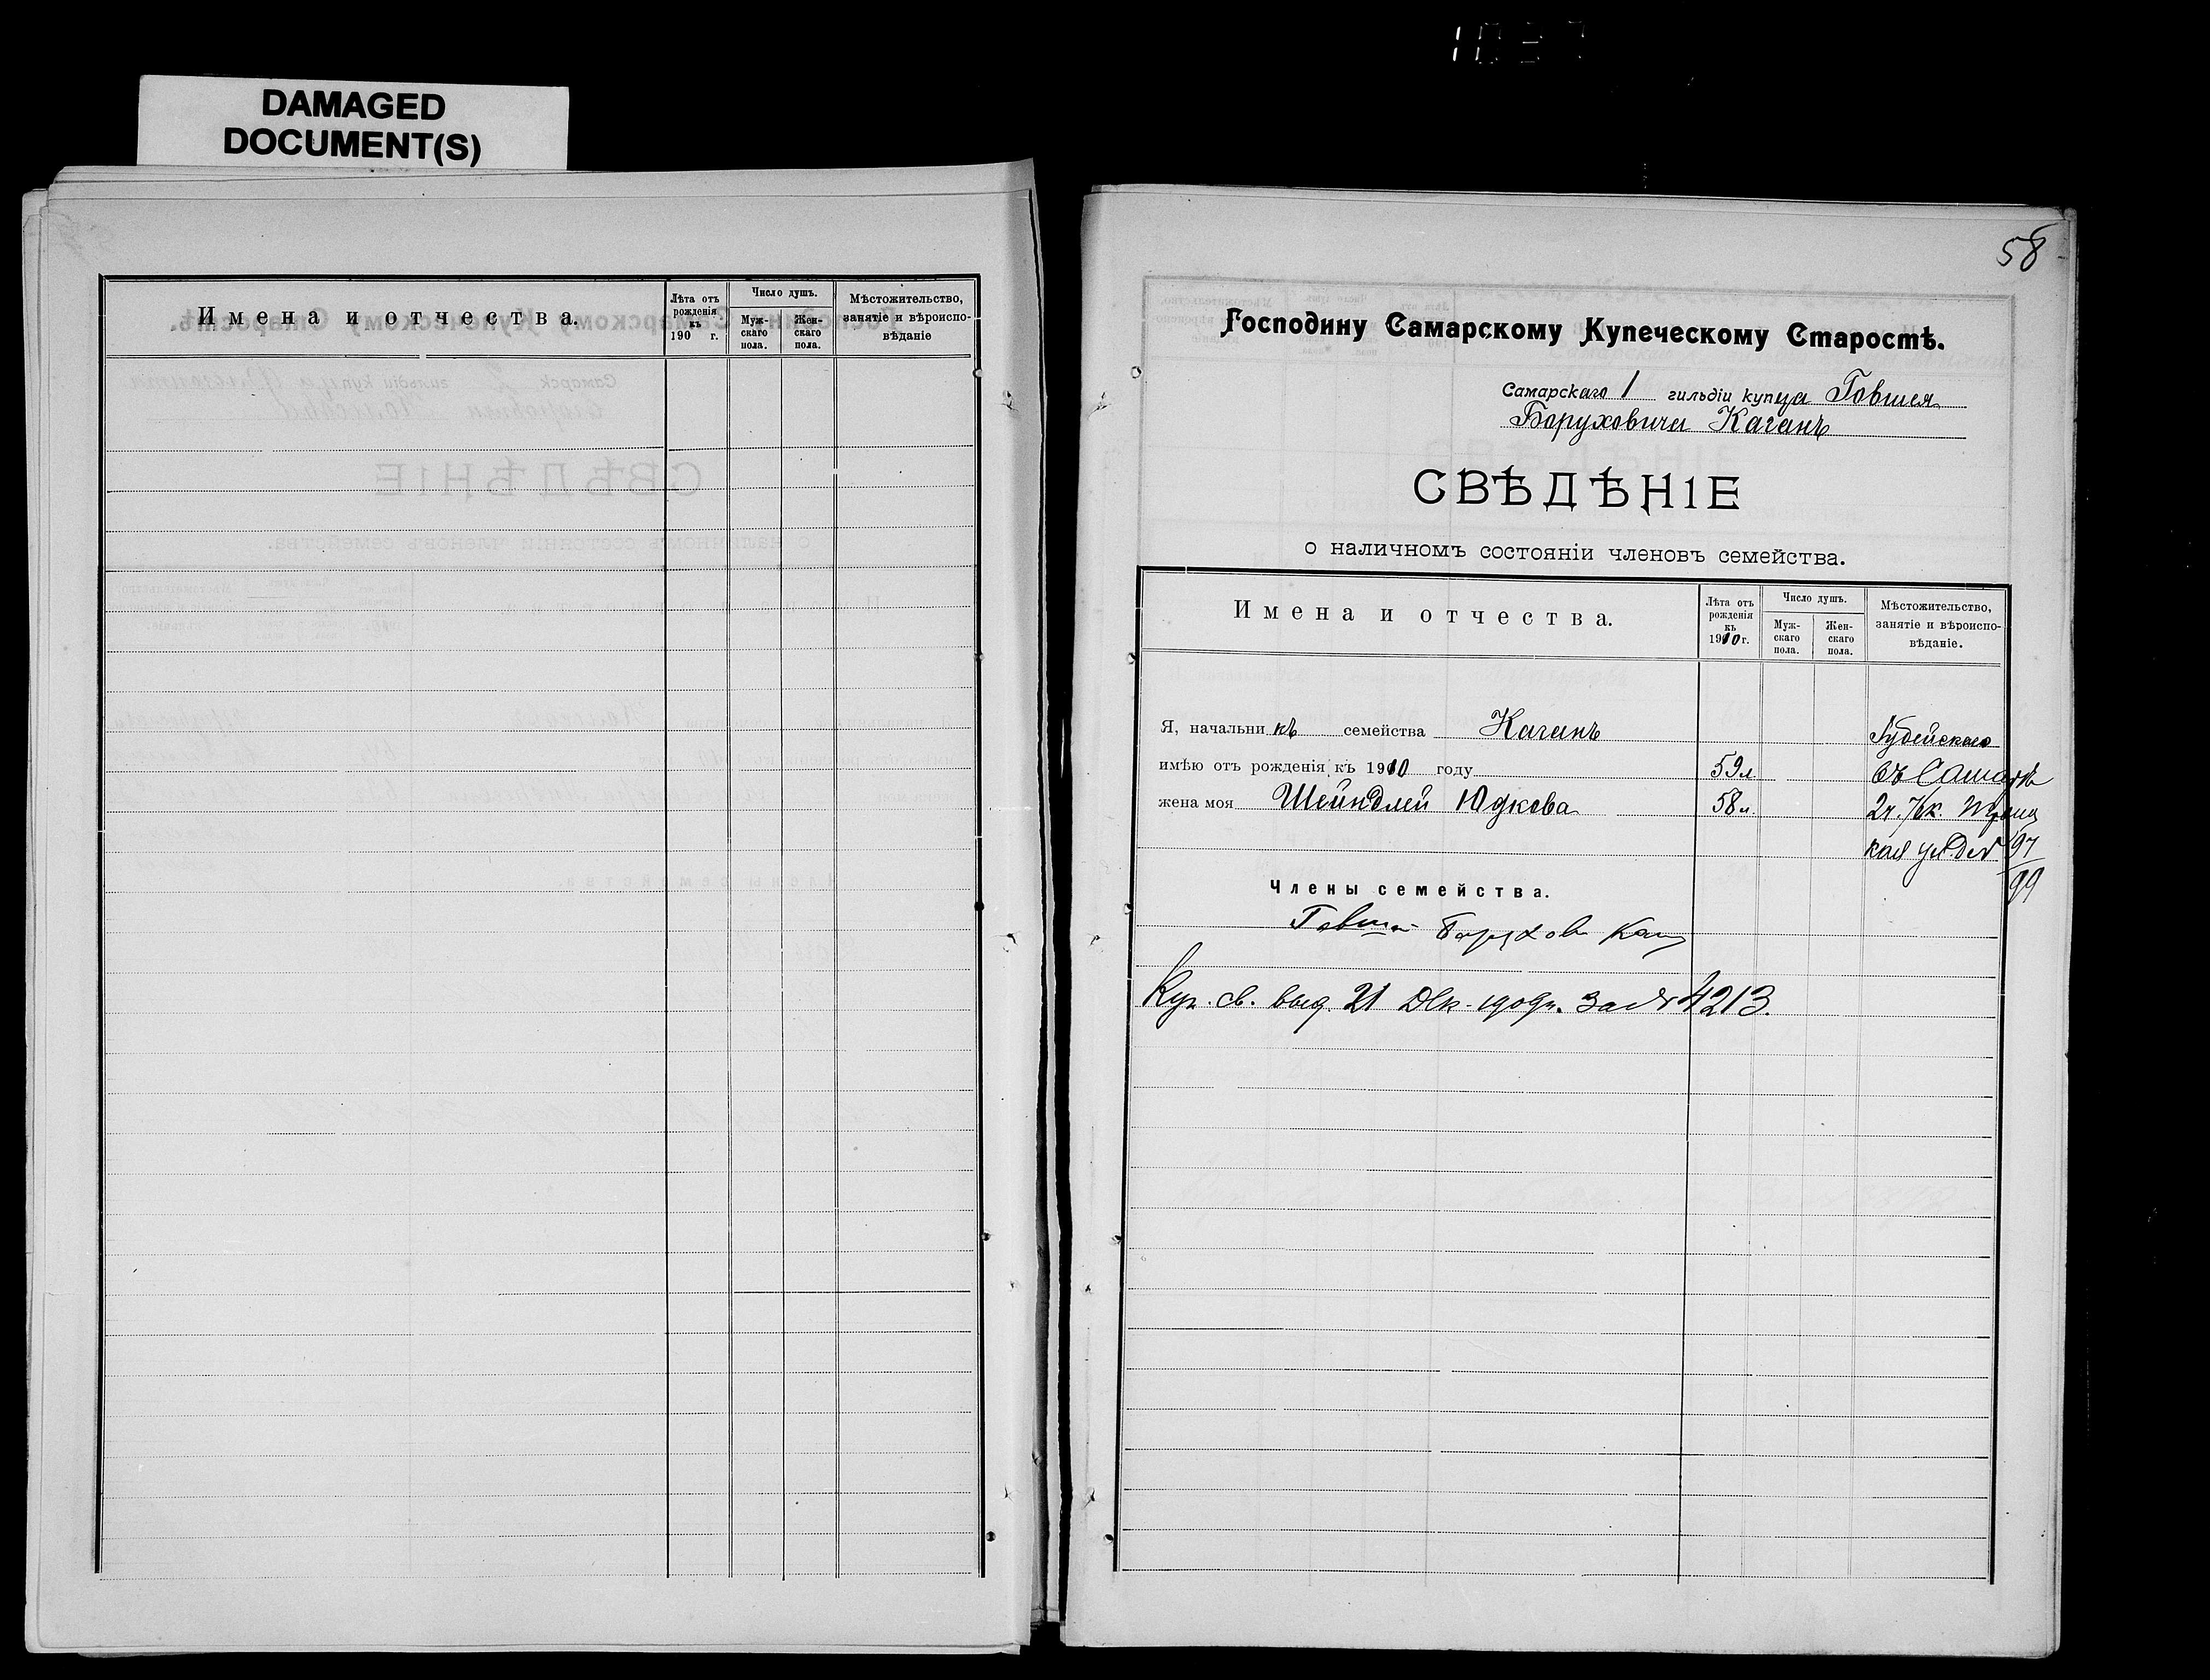 1037
DAMAGED
DOCUMENT(S)
Имена и отчества.
Лѣта отъ рожденія къ 190 г.
Число душъ.
Муж-скаго пола.
Жен-скаго пола.
Мѣстожительство, занятіе и вѣроиспо-вѣданіе
58
Господину Самарскому Купеческому Старостѣ.
Самарскаго 1 гильдіи купца Говшея
Боруховича Каганъ
СВѢДѢНІЕ
о наличномъ состояніи членовъ семейства.
Имена и отчества.
Лѣта отъ рожденія къ 1910 г.
Число душъ.
Муж-скаго пола.
Жен-скаго пола.
Мѣстожительство, занятіе и вѣроиспо-вѣданіе.
Я, начальникъ семейства Каганъ Іудейскаго
имѣю отъ рожденія къ 1910 году 59 л. въ Самарѣ
жена моя Шейндлей Юдкова 58 л. 2 ч.
кая ул. д. № 97/99
Члены семейства.
Говшей Борухов Каган
Куп. св. выд. 21 Дек. 1909 г. за № 4213.